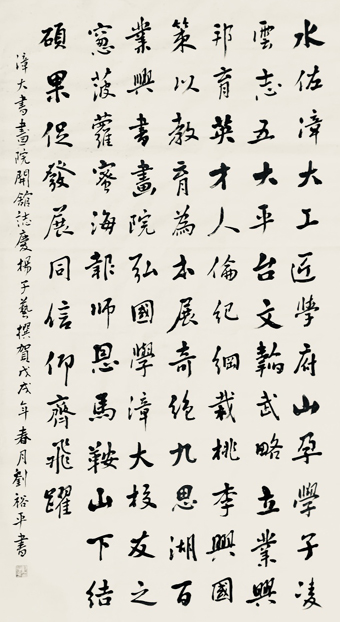 水佐漳大工匠學府山孕學子凌
雲志五大平台文韜武略立業興
邦育英才人倫紀綱栽桃李興國
策以教育為本展奇絕九思湖百
業興書畫院弘國學漳大校友之
窓菠蘿蜜海報师恩馬鞍山下結
碩果促發展同信仰齊飛躍
漳大書畫院開館誌慶楊子藝撰賀戊戌年春月劉裕平書